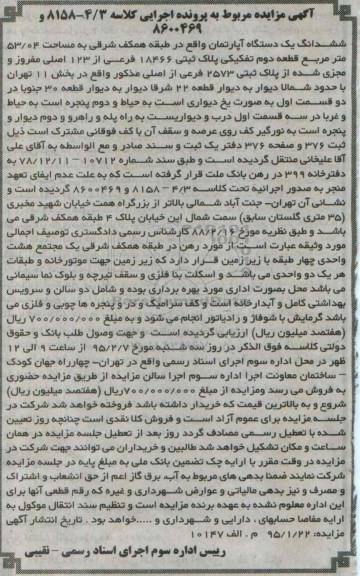 آگهی مزایده مربوط به پرونده اجرایی کلاسه ۸۱۵۸-۴/۳ و
۸۶۰۰۴۶۹
ششدانگ یک دستگاه آپارتمان واقع در طبقه همکف شرقی به مساحت ۵۳/۰۴
متر مربع قطعه دوم تفکیکی پلاک ثبتی ۱۸۴۶۶ فرعی از ۱۲۳ اصلی مفروز و
مجزی شده از پلاک ثبتی ۲۵۷۳ فرعی از اصلی مذکور واقع در بخش ۱۱ تهران
با حدود شمالا دیوار به دیوار قطعه ۲۲ شرقا دیوار به دیوار قطعه ۳۰ جنوبا در
دو قسمت اول به صورت پخ دیواری است به حیاط و دوم پنجره است به حیاط
و غربا در سه قسمت اول درب و دیواریست به راه پله و راهرو و دوم دیوار و
پنجره است به نورگیر کف روی عرصه و سقف آن با کف فوقانی مشترک است ذیل
ثبت ۳۷۶ و صفحه ۳۷۶ دفتر یک ثبت و سند صادر و مع الواسطه به آقای علی
آقا علیخانی منتقل گردیده است و طبق سند شماره ۱۰۷۱۲ – ۷۸/۱۲/۱۱
دفترخانه ۳۹۹ در رهن بانک ملت قرار گرفته است که به علت عدم ایفای تعهد
منجر به صدور اجرائیه تحت کلاسه ۴/۳ – ۸۱۵۸ و ۸۶۰۰۴۶۹ گردیده است و
نشانی آن تهران- جنت آباد شمالی بالاتر از بزرگراه همت خیابان شهید مخبری
(۳۵ متری گلستان سابق) سمت شمال این خیابان پلاک ۴ طبقه همکف شرقی می
باشد و طبق نظریه مورخ کارشناس رسمی دادگستری توصیف اجمالی
مورد وثیقه عبارت است از مورد رهن در طبقه همکف شرقی یک مجتمع هشت
واحدی چهار طبقه با زیرزمین قرار دارد که زیر زمین جهت موتورخانه و طبقات
هر یک دو واحدی می باشد و اسکلت بنا فلزی و سقف تیرچه و بلوک نما سیمانی
می باشد محل بصورت اداری مورد بهره برداری بوده و شامل دو سالن و سرویس
بهداشتی کامل و آبدارخانه است و کف سرامیک و در و پنجره ها چوبی و فلزی می
باشد گرمایش با شوفاژ و رادیاتور انجام می شود و به مبلغ ۷۰۰/۰۰۰/۰۰۰ ریال
(هفتصد میلیون ریال) ارزیابی گردیده است و جهت وصول طلب بانک و حقوق
دولتی کلاسه فوق الذکر در روز سه شنبه مورخ ۹۵/۲/۷ از ساعت ۹ الی ۱۲
ظهر در محل اداره سوم اجرای اسناد رسمی واقع در تهران- چهارراه جهان کودک
- ساختمان معاونت اجرا اداره سوم اجرا سالن مزایده از طریق مزایده حضوری
به فروش می رسد ومزایده از مبلغ ۷۰۰/۰۰۰/۰۰۰ریال (هفتصد میلیون ریال)
شروع و به بالاترین قیمت که خریدار داشته باشد فروخته خواهد شد شرکت در
جلسه مزایده برای عموم آزاد است و فروش کلا نقدی است چنانچه روز تعیین
شده با تعطیل رسمی مصادف گردد روز بعد از تعطیل جلسه مزایده در همان
ساعت و مکان تشکیل خواهد شد طالبین و خریداران می توانند جهت شرکت در
مزایده در وقت مقرر با ارایه چک تضمین بانک ملی به مبلغ پایه در جلسه مزایده
شرکت نمایند ضمنا بدهی های مربوط به آب برق گاز اعم از حق انشعاب و اشتراک
و مصرف و نیز بدهی مالیاتی و عوارض شهرداری و غیره که رقم قطعی آنها برای
این اداره معلوم نشده به عهده برنده مزایده است و تنظیم سند انتقال موکول به
ارایه مفاصا حسابهای ، دارایی و شهرداری و .....خواهد بود . تاریخ انتشار آگهی
مزایده: ۹۵/۱/۲۲ م . الف ۱۰۱۴۷
رییس اداره سوم اجرای اسناد رسمی - نقیبی